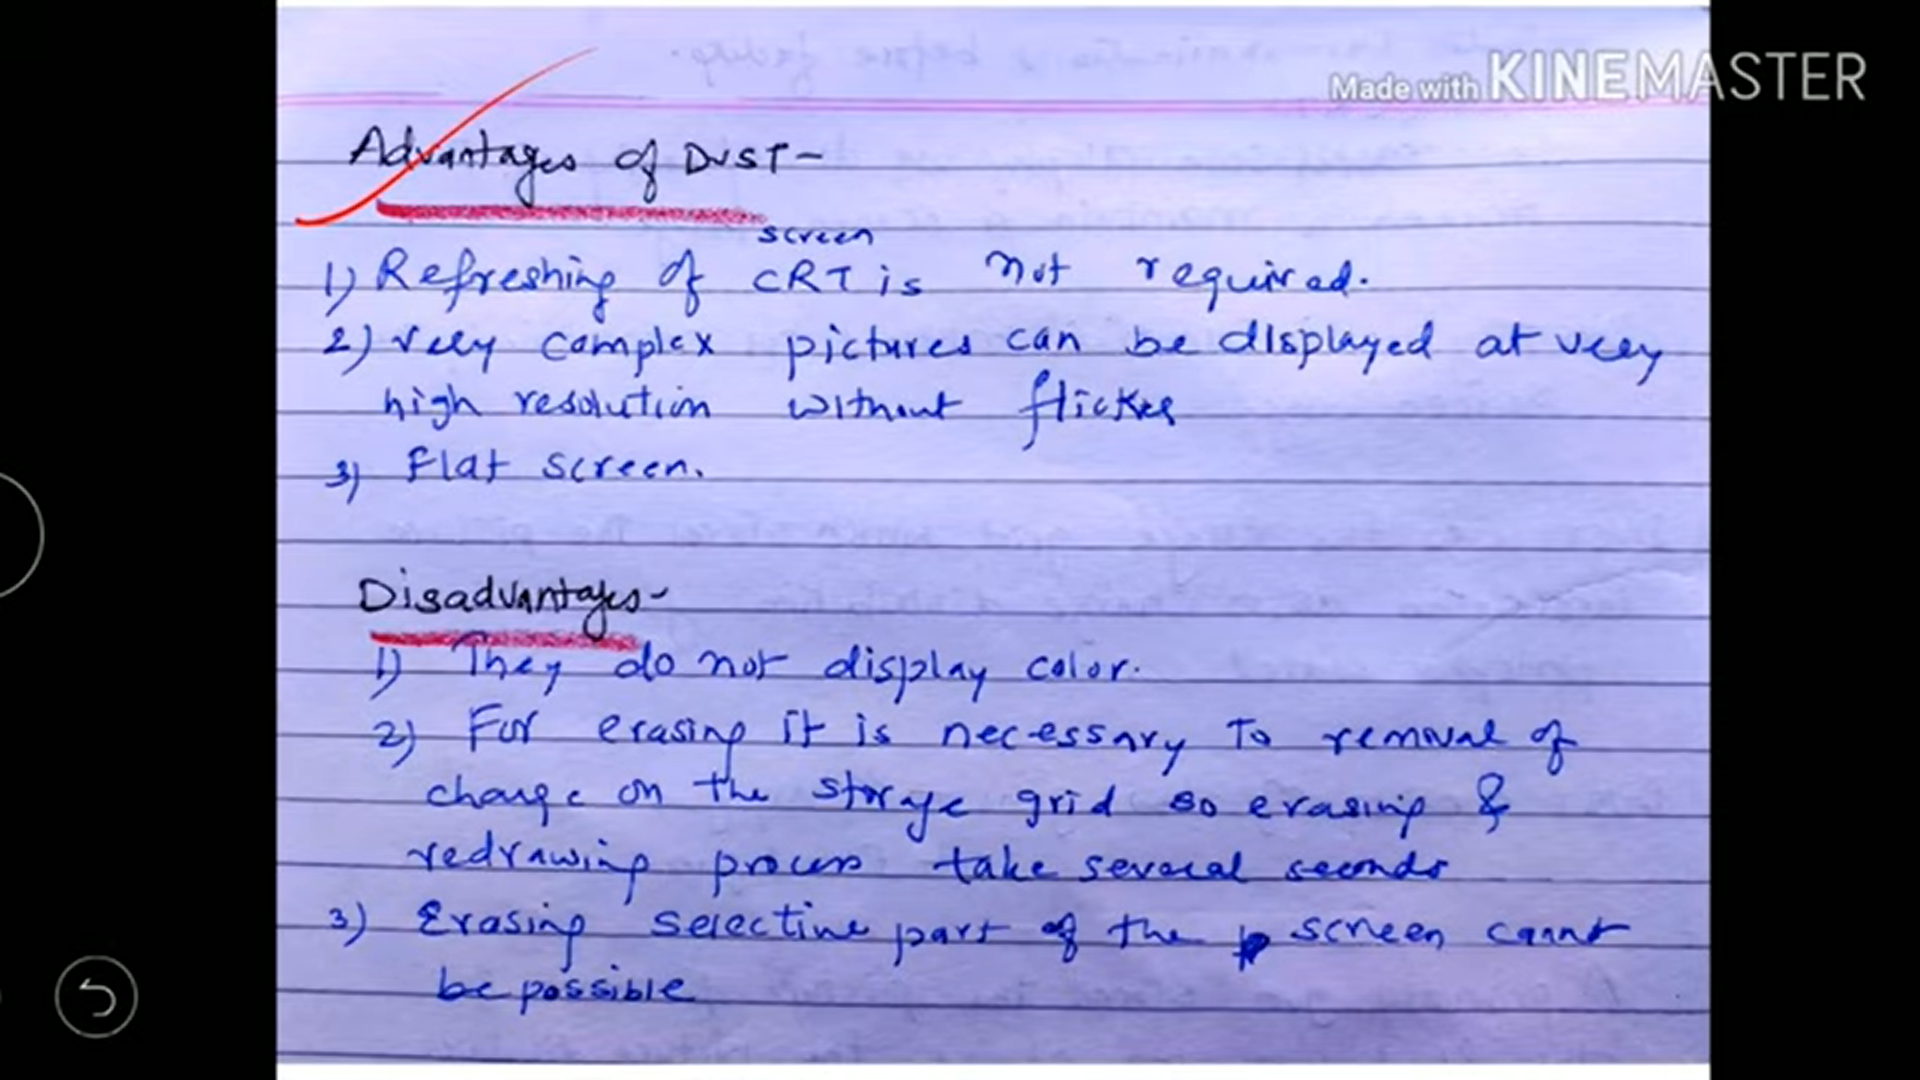 Made with KINEMASTER
Advantages of DVST-
screen
1) Refreshing of CRT is not required.
2) Very complex pictures can be displayed at very
high resolution without flicker
3) Flat screen.
Disadvantages-
1) They do not display color.
2) For erasing it is necessary To removal of
charge on the storage grid so erasing &
redrawing process take several seconds
3) Erasing selective part of the screen cannt
be possible